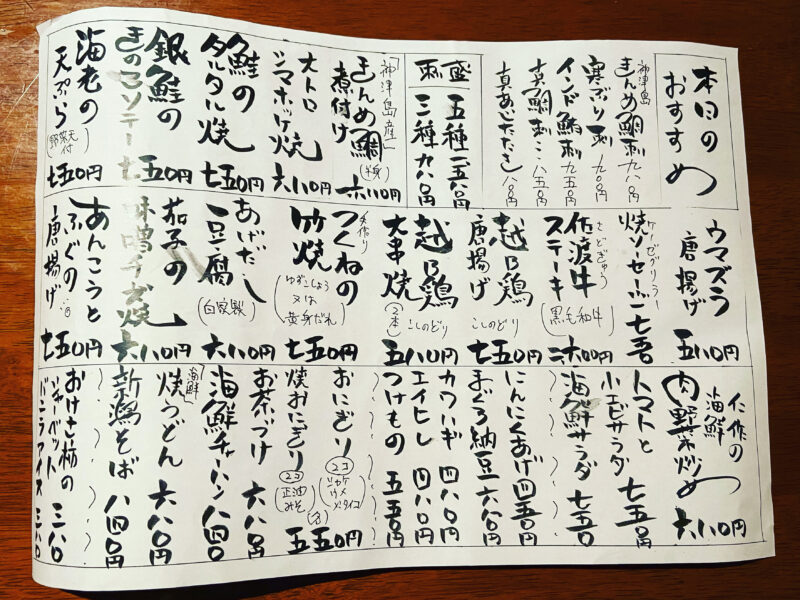 本日の
おすすめ
神津島
きんめ鯛刺 九八〇円
寒ぶり刺 九〇〇円
インド鮪刺 九五〇円
真鯛刺 八五〇円
真あじたたき 八〇円
刺盛
五種 一五八〇円
三種 九八〇円
「神津島産」
きんめ鯛
煮付け (半身)
六八〇円
大トロ
シマホッケ焼
六八〇円
鮭の
タルタル焼
七五〇円
銀鮭の
きのこソテー
七五〇円
海老の
天ぷら (野菜天付)
七五〇円
ウマズラ
唐揚げ
五八〇円
ケーゼグリラー
焼ソーセージ 七五〇
佐渡牛 さどぎゅう
ステーキ (黒毛和牛)
二六〇〇円
越の鶏
唐揚げ こしのどり
七五〇円
越の鶏
大串焼 (2本) こしのどり
五八〇円
手作り
つくねの
竹焼 (ゆずこしょう 又は 黄身だれ)
七五〇円
あげだし
豆腐 (自家製)
六八〇円
茄子の
味噌チーズ焼
六八〇円
あんこうと
ふぐの
唐揚げ
七五〇円
仁作の
海鮮
肉野菜炒め
六八〇円
トマトと
小エビサラダ
七五〇円
海鮮サラダ 七五〇
にんにくあげ 四五〇円
まぐろ納豆 六八〇円
カワハギ 四八〇円
エイヒレ 四八〇円
つけもの 五五〇円
おにぎり (2コ) (シャケ ウメ メンタイコ)
焼おにぎり (2コ) (正油 みそ)
(各) 五五〇円
お茶づけ 六八〇円
海鮮チャーハン 八四〇
「海鮮」
焼うどん 六八〇円
新潟そば 八四〇円
おけさ柿の
シャーベット
バニラアイス 三八〇